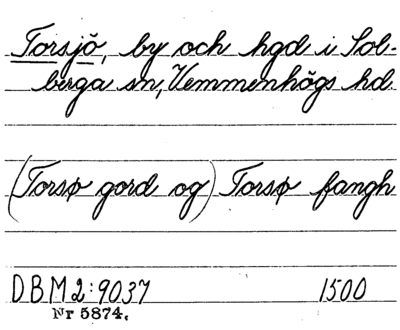 Torsjö, by och hgd i Sol-
berga sn, Vemmenhögs hd.
(Torsø gord og) Torsø fangh
DBM2:9037 1500
Nr 5874.